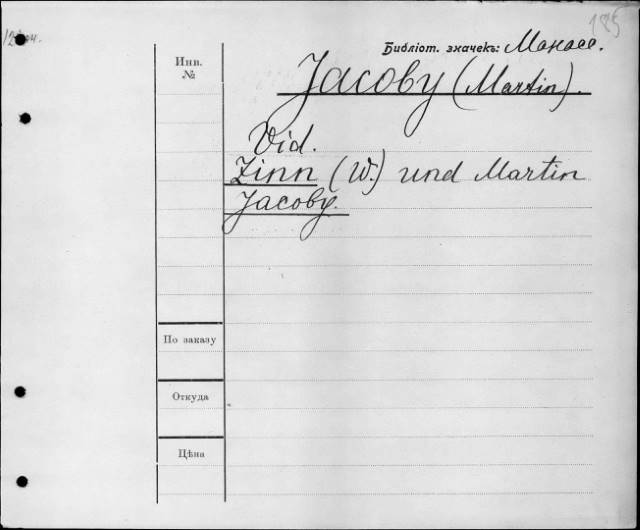 185
Библіот. значекъ: Манасе.
Инв.
№
Jacoby (Martin).
Vid.
Zinn (W.) und Martin
Jacoby.
По заказу
Откуда
Цѣна